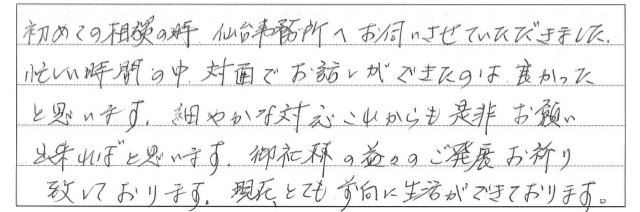 初めての相談の時、仙台事務所へお伺いさせていただきました。
忙しい時間の中、対面でお話しができたのは良かった
と思います。細やかな対応これからも是非お願い
出来ればと思います。御社様の益々のご発展お祈り
致しております。現在、とても前向に生活ができております。